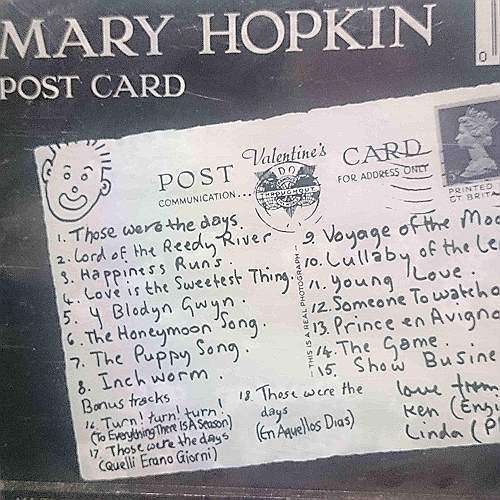 MARY HOPKIN
POST CARD
POST Valentine's CARD
COMMUNICATION... FOR ADDRESS ONLY
THROUGHOUT
PRINTED
GT BRITA
THIS IS A REAL PHOTOGRAPH
1. Those were the days.
2. Lord of the Reedy River
3. Happiness Runs.
4. Love is the Sweetest Thing.
5. Y Blodyn Gwyn.
6. The Honeymoon Song.
7. The Puppy Song.
8. Inch worm
Bonus tracks
16. Turn! turn! turn!
(To Everything There Is A Season)
17. Those were the days
(Quelli Erano Giorni)
18. Those were the
days
(En Aquellos Dias)
9. Voyage of the Moo
10. Lullaby of the Le
11. Young Love.
12. Someone To watch o
13. Prince en Avigno
14. The Game.
15. Show Busine
love from
Ken (Eng
Linda (P